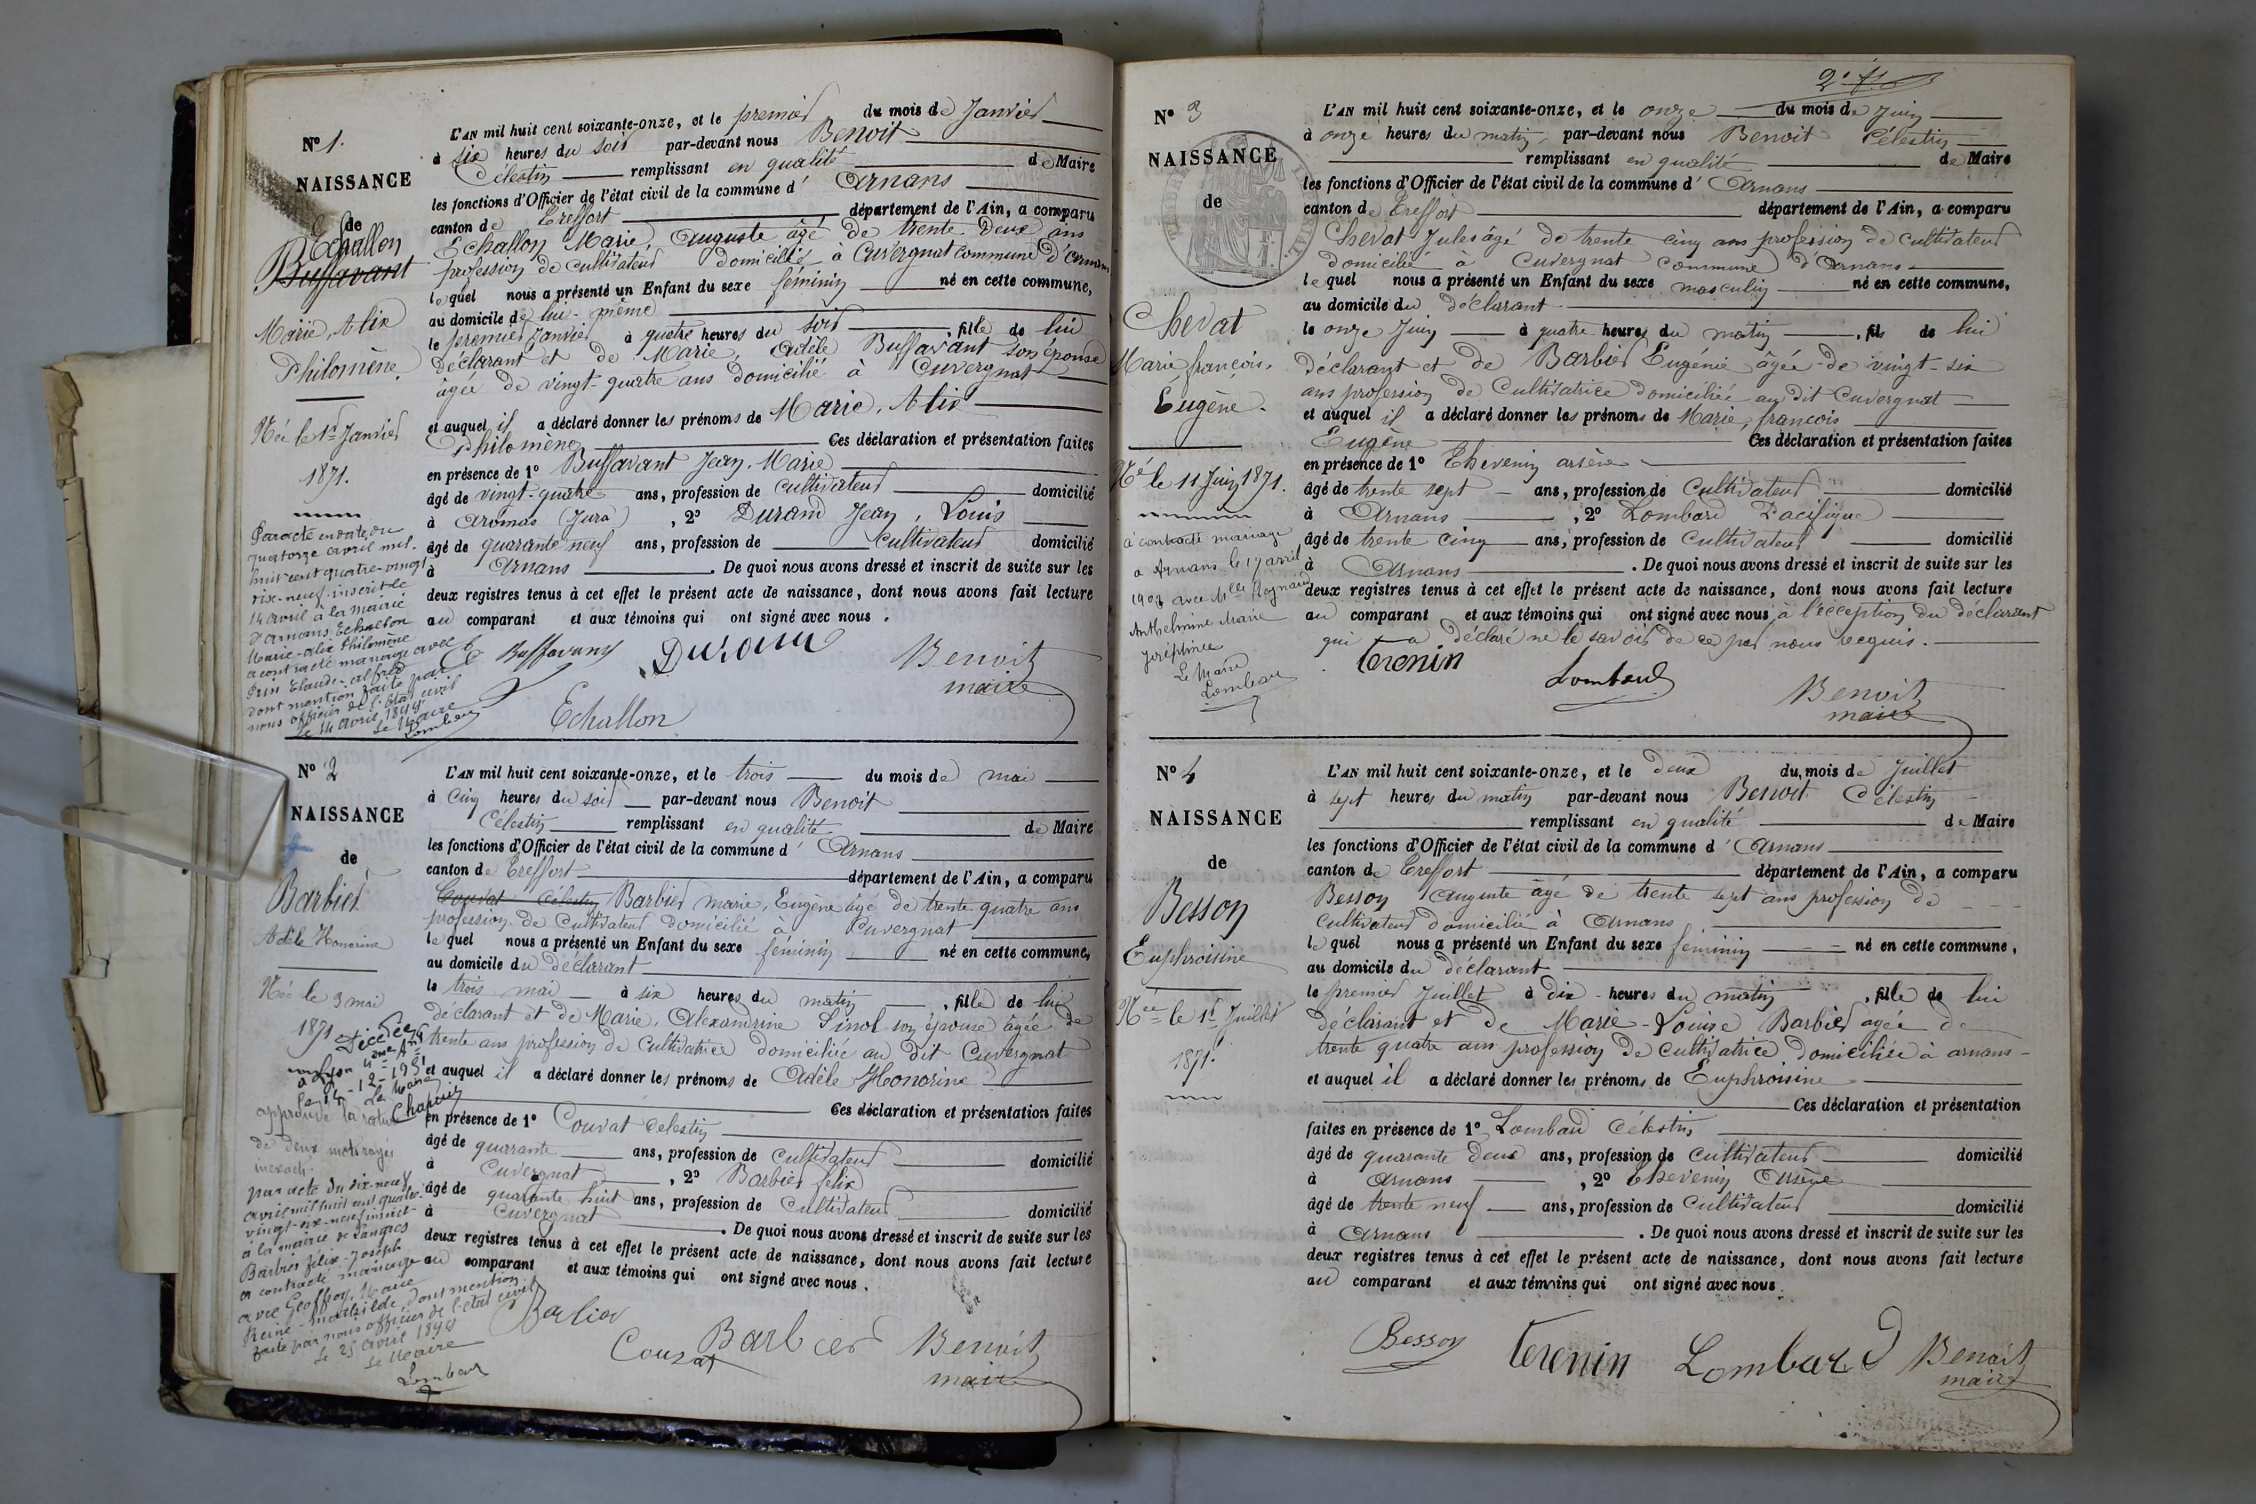 N° 1.
NAISSANCE
de
Echallon
Buffavant
Marie, Alix
Philomène.
Née le 1er Janvier
1871.
Par acte en date du
quatorze avril mil
huit cent quatre-vingt
dix-neuf inscrit le
14 avril à la Mairie
d'Arnans Echallon
Marie-Alix Philomène
a contracté mariage avec
Claude-Alfred
dont mention faite par
nous officier de l'état civil
le 14 avril 1899
Le Maire
Lombard
L'AN mil huit cent soixante-onze, et le premier du mois de Janvier
à six heures du soir par-devant nous Benoit
Célestin remplissant en qualité de Maire
les fonctions d'Officier de l'état civil de la commune d' Arnans
canton de Treffort département de l'Ain, a comparu
Echallon Marie, Auguste âgé de trente-deux ans
profession de cultivateur domicilié à Cuvergnat commune d'Arnans
lequel nous a présenté un Enfant du sexe féminin né en cette commune,
au domicile de lui-même
le premier Janvier à quatre heures du soir, fille de lui
déclarant et de Marie, Adèle Buffavant son épouse
âgée de vingt-quatre ans domicilié à Cuvergnat
et auquel il a déclaré donner les prénoms de Marie, Alix
Philomène Ces déclaration et présentation faites
en présence de 1° Buffavant Jean-Marie
âgé de vingt-quatre ans, profession de cultivateur domicilié
à Aromas (Jura), 2° Durand Jean, Louis
âgé de quarante neuf ans, profession de cultivateur domicilié
à Arnans. De quoi nous avons dressé et inscrit de suite sur les
deux registres tenus à cet effet le présent acte de naissance, dont nous avons fait lecture
au comparant et aux témoins qui ont signé avec nous.
Buffavant Durand Benoit
maire
Echallon
N° 2
NAISSANCE
de
Barbier
Adèle Honorine
Née le 3 mai
1871
Décédée
à Lyon 4ème Arr
le 14-12-1951
Le Maire
Chapuis
approuvé la rature
de deux mots rayés
inexact.
par acte du dix-neuf
avril mil huit cent quatre-
vingt-dix-neuf inscrit
à la mairie de Langres
Barbier félix-Joseph
a contracté mariage
avec Geoffroy, Marie
Reine-Mathilde, dont mention
faite par nous officier de l'état civil
le 25 avril 1899
Le Maire
Lombard
L'AN mil huit cent soixante-onze, et le trois du mois de mai
à cinq heures du soir par-devant nous Benoit
Célestin remplissant en qualité de Maire
les fonctions d'Officier de l'état civil de la commune d' Arnans
canton de Treffort département de l'Ain, a comparu
Couvat Célestin Barbier marie, Eugène âgé de trente quatre ans
profession de Cultivateur domicilié à Cuvergnat
lequel nous a présenté un Enfant du sexe féminin né en cette commune,
au domicile du déclarant
le trois mai à six heures du matin, fille de lui
déclarant et de Marie, Alexandrine son épouse âgée de
trente ans profession de cultivatrice domiciliée au dit Cuvergnat
et auquel il a déclaré donner les prénoms de Adèle Honorine
Ces déclaration et présentation faites
en présence de 1° Couvat Celestin
âgé de quarante ans, profession de cultivateur domicilié
à Cuvergnat, 2° Barbier felix
âgé de quarante huit ans, profession de Cultivateur domicilié
à Cuvergnat. De quoi nous avons dressé et inscrit de suite sur les
deux registres tenus à cet effet le présent acte de naissance, dont nous avons fait lecture
au comparant et aux témoins qui ont signé avec nous.
Barbier
Couvat Barbier Benoit
maire
2e f.
N° 3
NAISSANCE
de
Chevat
Marie françois,
Eugène.
Né le 11 Juin 1871.
a contracté mariage
a Arnans le 17 avril
avec Melle
Anthelmine Marie
Joséphine
Le Maire
Lombard
L'AN mil huit cent soixante-onze, et le onze du mois de Juin
à onze heures du matin, par-devant nous Benoit Célestin
remplissant en qualité de Maire
les fonctions d'Officier de l'état civil de la commune d' Arnans
canton de Treffort département de l'Ain, a comparu
Chevat Jules âgé de trente cinq ans profession de cultivateur
domicilié à Cuvergnat commune d'Arnans
lequel nous a présenté un Enfant du sexe masculin né en cette commune,
au domicile du déclarant
le onze Juin à quatre heures du matin, fils de lui
déclarant et de Barbier Eugénie âgée de vingt-six
ans profession de Cultivatrice domiciliée au dit Cuvergnat
et auquel il a déclaré donner les prénoms de Marie, françois
Eugène Ces déclaration et présentation faites
en présence de 1° Thevenin arsène
âgé de trente sept ans, profession de Cultivateur domicilié
à Arnans, 2° Lombard Pacifique
âgé de trente cinq ans, profession de Cultivateur domicilié
à Arnans. De quoi nous avons dressé et inscrit de suite sur les
deux registres tenus à cet effet le présent acte de naissance, dont nous avons fait lecture
au comparant et aux témoins qui ont signé avec nous à l'exception du déclarant
qui a déclaré ne le savoir de ce par nous requis.
Tevenin Lombard Benoit
maire
N° 4
NAISSANCE
de
Besson
Euphroisine
Née le 1er Juillet
1871.
L'AN mil huit cent soixante-onze, et le deux du mois de Juillet
à sept heures du matin par-devant nous Benoit Célestin
remplissant en qualité de Maire
les fonctions d'Officier de l'état civil de la commune d' Arnans
canton de Treffort département de l'Ain, a comparu
Besson Auguste âgé de trente sept ans profession de
cultivateur domicilié à Arnans
lequel nous a présenté un Enfant du sexe féminin né en cette commune,
au domicile du déclarant
le premier Juillet à dix heures du matin, fille de lui
déclarant et de Marie-Louise Barbier agée de
trente quatre ans profession de cultivatrice domiciliée à arnans
et auquel il a déclaré donner les prénoms de Euphroisine
Ces déclaration et présentation
faites en présence de 1° Lombard Célestin
âgé de quarante deux ans, profession de cultivateur domicilié
à Arnans, 2° Thevenin Arsène
âgé de trente neuf ans, profession de Cultivateur domicilié
à Arnans. De quoi nous avons dressé et inscrit de suite sur les
deux registres tenus à cet effet le présent acte de naissance, dont nous avons fait lecture
au comparant et aux témoins qui ont signé avec nous.
Besson Tevenin Lombard Benoit
maire